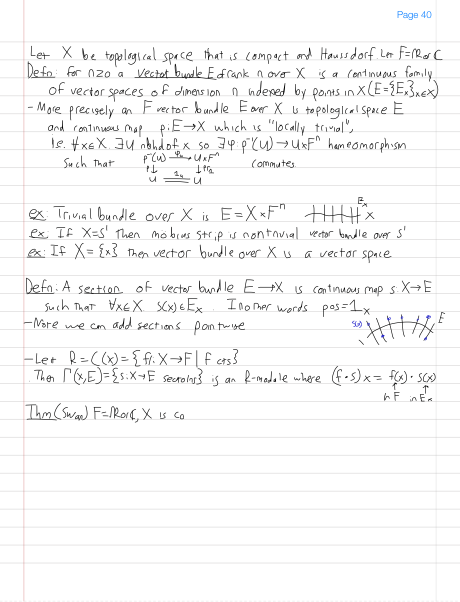 Page 40
Let X be topological space that is compact and Haussdorf. Let F=ℝ or ℂ
Defn: for n≥0 a vector bundle E of rank n over X is a continuous family
of vector spaces of dimension n indexed by points in X (E={Eₓ}ₓ∈X)
- More precisely an F vector bundle E over X is topological space E
and continuous map p:E→X which is "locally trivial",
I.e. ∀x∈X. ∃U nbhd of x so ∃φ:p⁻¹(U)→U×Fⁿ homeomorphism
such that p⁻¹(U) →φᵤ U×Fⁿ commutes.
p↓ ↓pr₂
U =1ᵤ U
ex: Trivial bundle over X is E=X×Fⁿ Eₓ X
ex: If X=S¹ then mobius strip is nontrivial vector bundle over S¹
ex: If X={x} then vector bundle over X is a vector space
Defn: A section of vector bundle E→X is continuous map s:X→E
such that ∀x∈X s(x)∈Eₓ. In other words p∘s=1ₓ
- Note we can add sections pointwise s(x) E
- Let R=C(X)={f:X→F | f cts}
Then Γ(X,E)={s:X→E sections} is an R-module where (f·s)x = f(x)·s(x)
in F in Eₓ
Thm (Swan) F=ℝ or ℂ, X is co